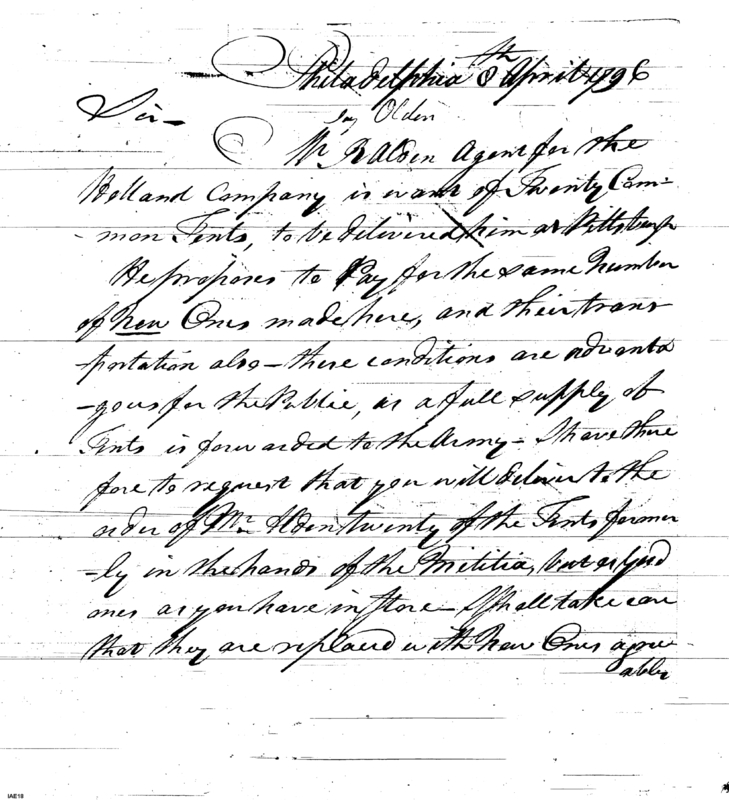 Philadelphia 8th April 1796
Sir –
Jay Olden
Mr R Alden Agent for the
Holland Company is in want of Twenty Com-
-mon Tents, to be delivered him at Pittsburgh
He proposes to Pay for the same Number
of New Ones made here, and their trans
-portation also – these conditions are advanta
-geous for the Public, as a full supply of
Tents is forwarded to the Army – I have there
fore to request that you will deliver to the
order of Mr Alden twenty of the Tents former
-ly in the hands of the Militia, but as good
ones as you have in Store – I shall take care
that they are replaced with New Ones agree
ably
IAE18